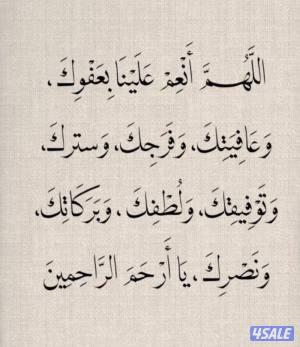 اللَّهُمَّ أَنْعِمْ عَلَيْنَا بِعَفْوِكَ،
وَعَافِيَتِكَ، وَفَرَجِكَ، وَسترِكَ،
وَتَوْفِيقِكَ، وَلُطْفِكَ، وَبَرَكَاتِكَ،
وَنَصْرِكَ، يَا أَرْحَمَ الرَّاحِمِينَ
4SALE